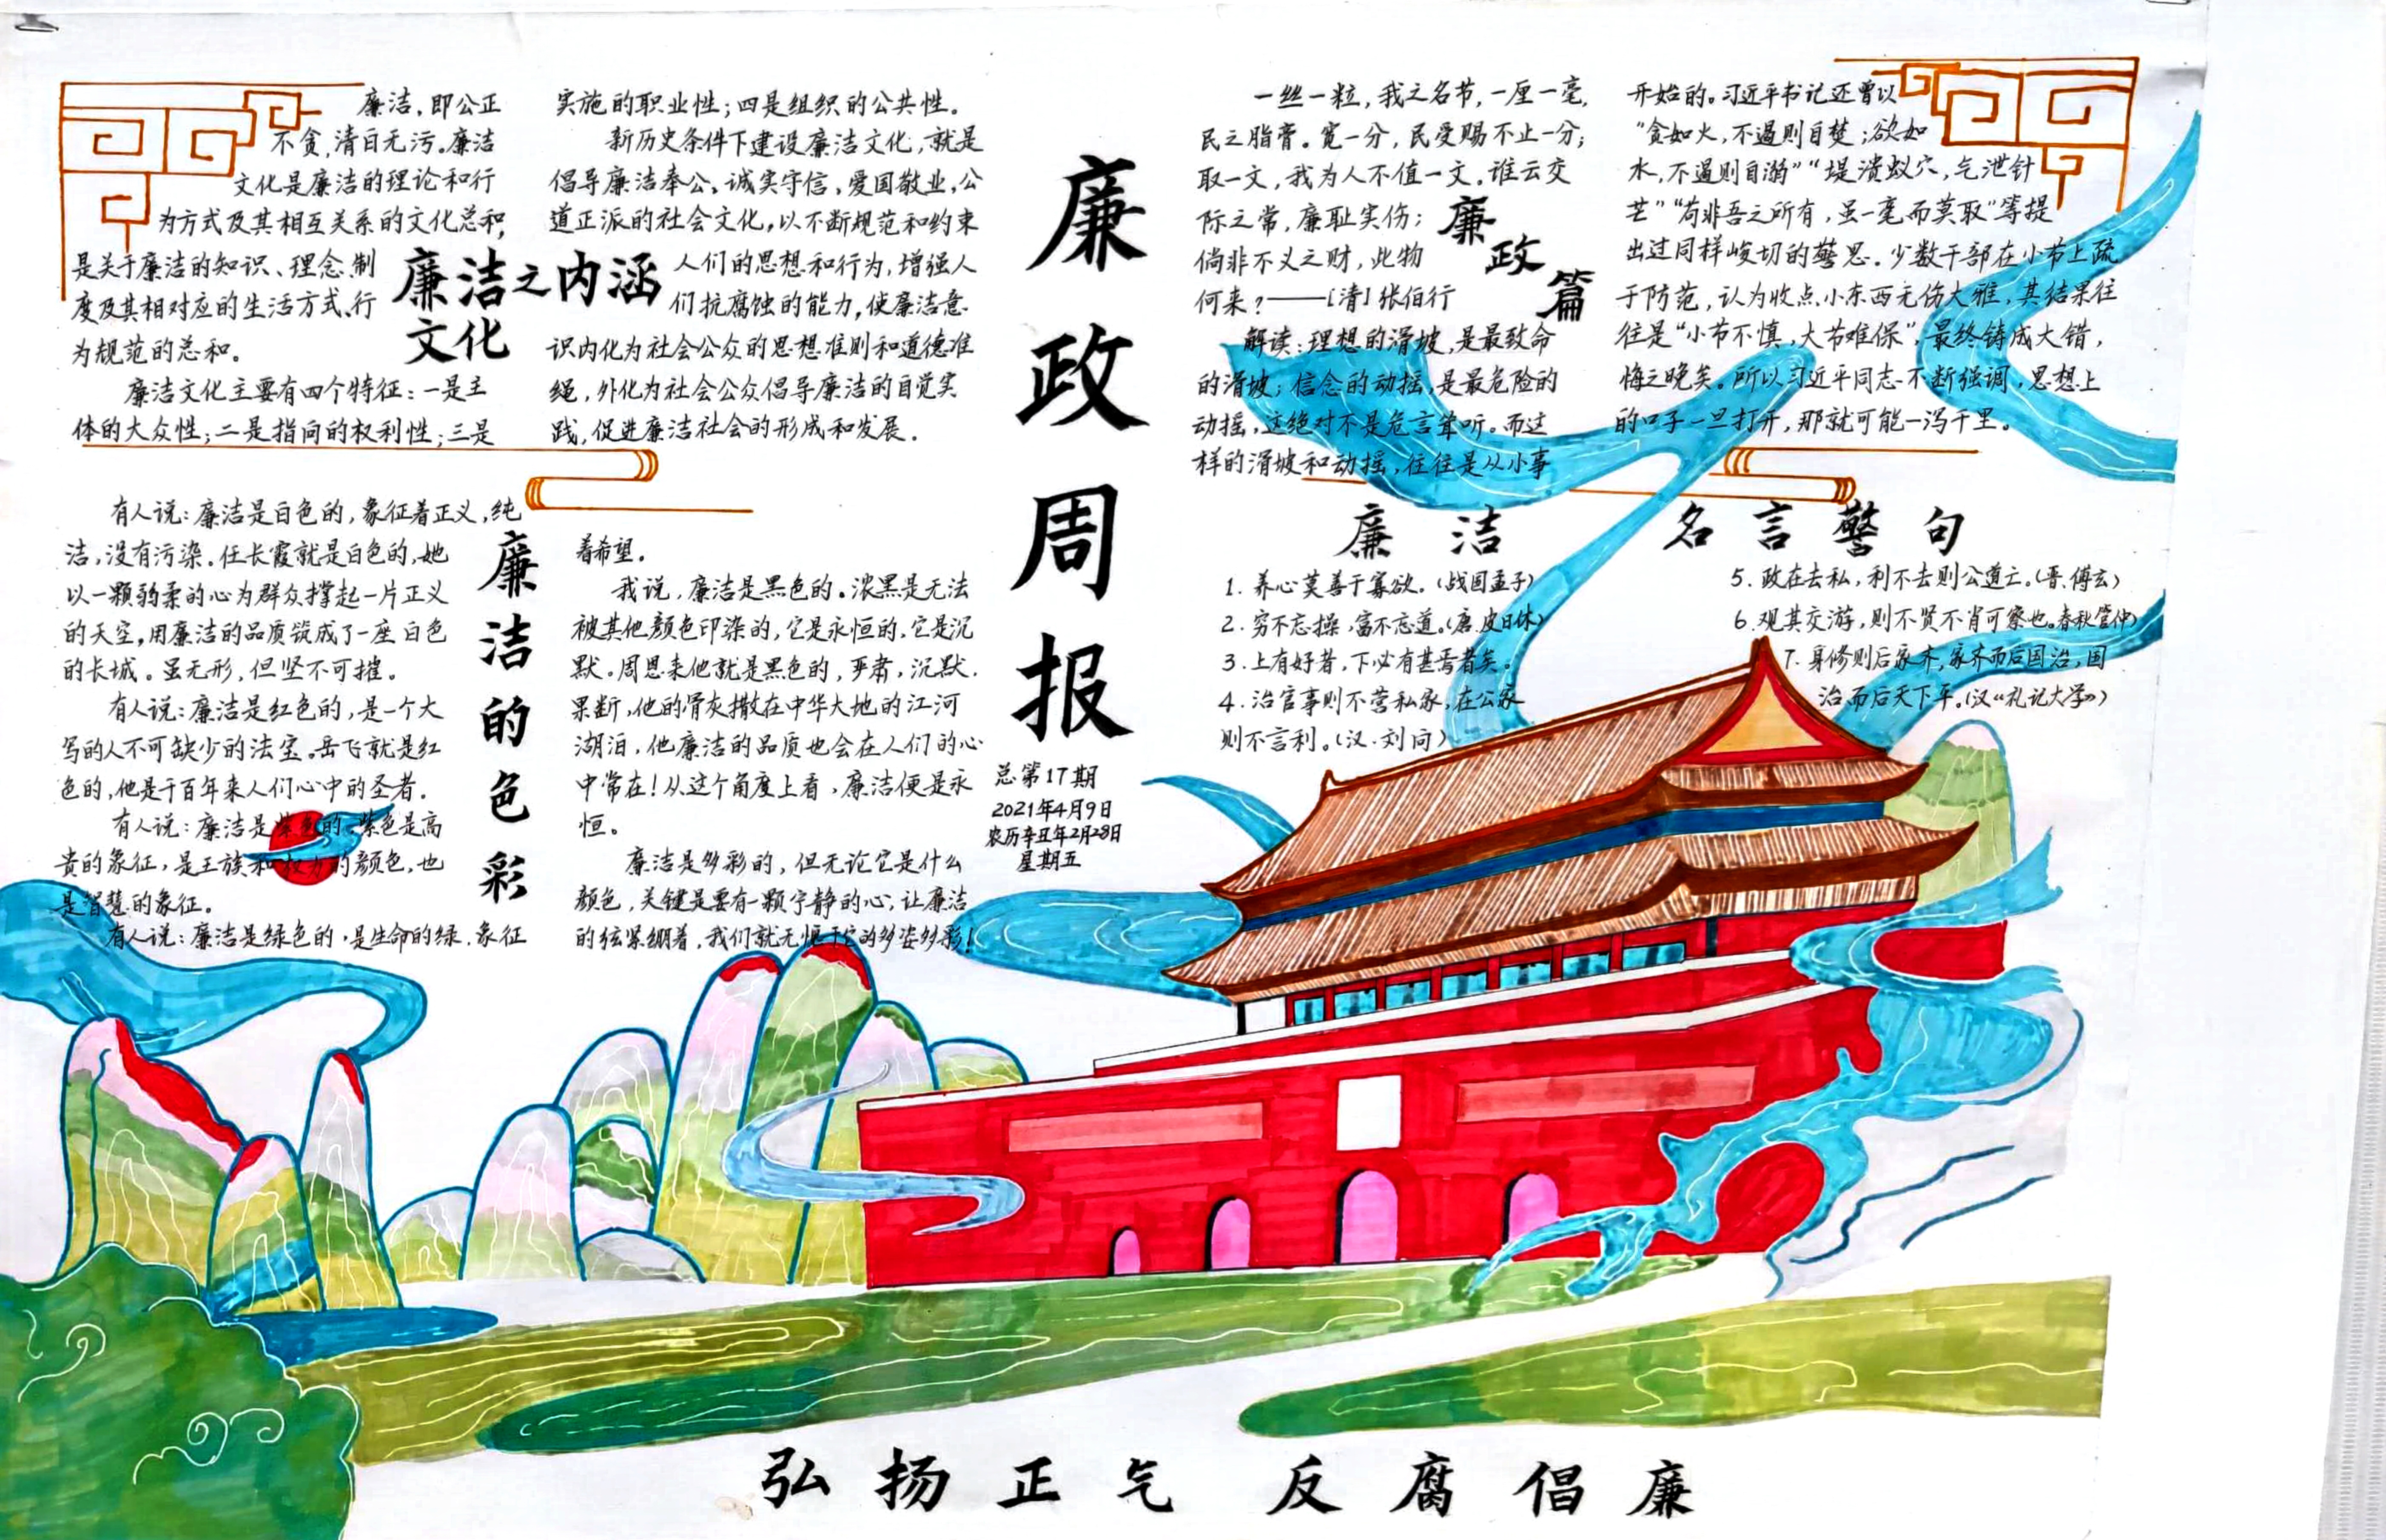 廉政周报
总第17期
2021年4月9日
农历辛丑年2月28日
星期五
廉洁文化之内涵
廉洁，即公正
不贪，清白无污。廉洁
文化是廉洁的理论和行
为方式及其相互关系的文化总和，
是关于廉洁的知识、理念、制
度及其相对应的生活方式、行
为规范的总和。
廉洁文化主要有四个特征：一是主
体的大众性；二是指向的权利性；三是
实施的职业性；四是组织的公共性。
新历史条件下建设廉洁文化，就是
倡导廉洁奉公、诚实守信、爱国敬业，公
道正派的社会文化，以不断规范和约束
人们的思想和行为，增强人
们抗腐蚀的能力，使廉洁意
识内化为社会公众的思想准则和道德准
绳，外化为社会公众倡导廉洁的自觉实
践，促进廉洁社会的形成和发展。
廉洁的色彩
有人说：廉洁是白色的，象征着正义，纯
洁，没有污染。任长霞就是白色的，她
以一颗弱柔的心为群众撑起一片正义
的天空，用廉洁的品质筑成了一座白色
的长城。虽无形，但坚不可摧。
有人说：廉洁是红色的，是一个大
写的人不可缺少的法宝。岳飞就是红
色的，他是千百年来人们心中的圣者。
有人说：廉洁是紫色的，紫色是高
贵的象征，是王族和权力的颜色，也
是智慧的象征。
有人说：廉洁是绿色的，是生命的绿，象征
着希望。
我说，廉洁是黑色的。浓黑是无法
被其他颜色印染的，它是永恒的，它是沉
默。周恩来他就是黑色的，严肃，沉默，
果断，他的骨灰撒在中华大地的江河
湖泊，他廉洁的品质也会在人们的心
中常在！从这个角度上看，廉洁便是永
恒。
廉洁是多彩的，但无论它是什么
颜色，关键是要有一颗宁静的心，让廉洁
的弦紧绷着，我们就无愧于它的多姿多彩！
廉政篇
一丝一粒，我之名节，一厘一毫，
民之脂膏。宽一分，民受赐不止一分；
取一文，我为人不值一文。谁云交
际之常，廉耻实伤；
倘非不义之财，此物
何来？——［清］张伯行
解读：理想的滑坡，是最致命
的滑坡；信念的动摇，是最危险的
动摇，这绝对不是危言耸听。而这
样的滑坡和动摇，往往是从小事
开始的。习近平书记还曾以
“贪如火，不遏则自焚；欲如
水，不遏则自溺”“堤溃蚁穴，气泄针
芒”“苟非吾之所有，虽一毫而莫取”等提
出过同样峻切的警思。少数干部在小节上疏
于防范，认为收点小东西无伤大雅，其结果往
往是“小节不慎，大节难保”，最终铸成大错，
悔之晚矣。所以习近平同志不断强调，思想上
的口子一旦打开，那就可能一泻千里。
廉洁名言警句
1.养心莫善于寡欲。（战国孟子）
2.穷不忘操，富不忘道。（唐.皮日休）
3.上有好者，下必有甚焉者矣。
4.治官事则不营私家，在公家
则不言利。（汉.刘向）
5.政在去私，利不去则公道亡。（晋.傅玄）
6.观其交游，则不贤不肖可察也。春秋管仲）
7.身修则后家齐，家齐而后国治，国
治而后天下平。（汉《礼记大学》）
弘扬正气 反腐倡廉